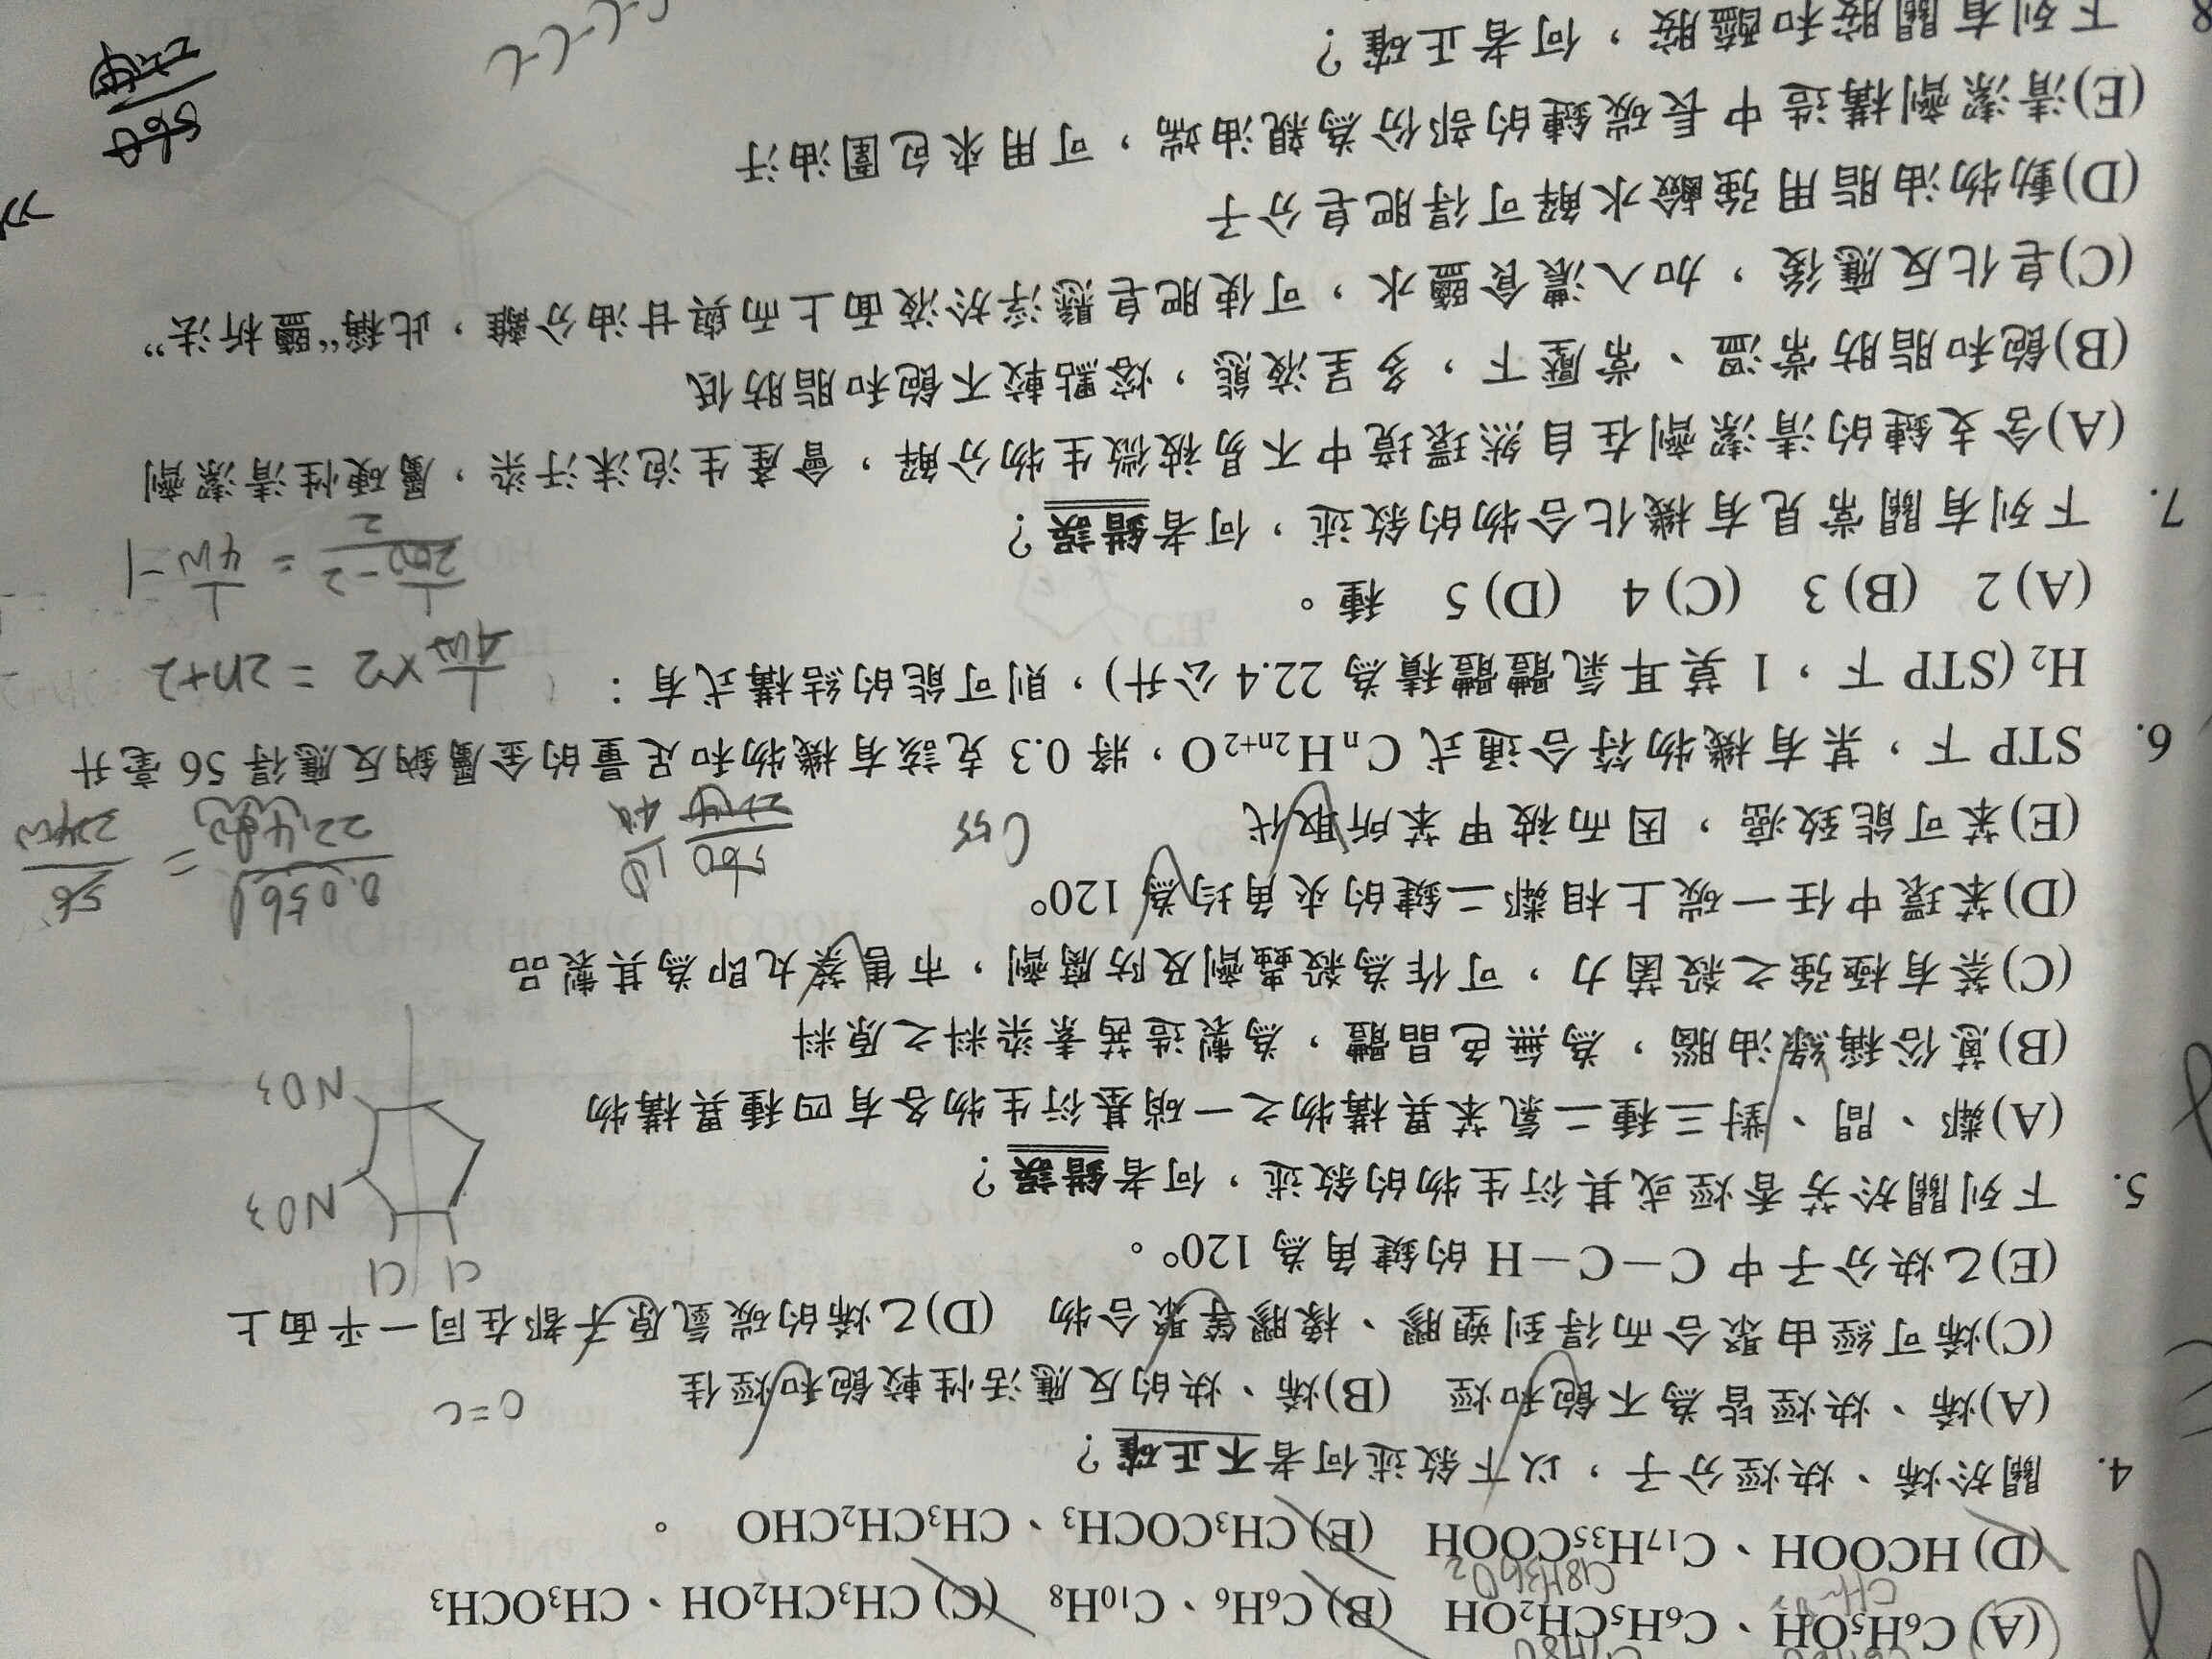 (A) C₆H₅OH、C₆H₅CH₂OH (B) C₆H₆、C₁₀H₈ (C) CH₃CH₂OH、CH₃OCH₃
C18H36O2
(D) HCOOH、C₁₇H₃₅COOH (E) CH₃COCH₃、CH₃CH₂CHO 。
4. 關於烯、炔烴分子，以下敘述何者不正確？
(A)烯、炔烴皆為不飽和烴 (B)烯、炔的反應活性較飽和烴佳
C=C
(C)烯可經由聚合而得到塑膠、橡膠等聚合物 (D)乙烯的碳氫原子都在同一平面上
(E)乙炔分子中 C－C－H 的鍵角為 120°。
Cl Cl
5. 下列關於芳香烴或其衍生物的敘述，何者錯誤？
NO3
(A)鄰、間、對三種二氯苯異構物之一硝基衍生物各有四種異構物
NO3
(B)蒽俗稱綠油腦，為無色晶體，為製造茜素染料之原料
(C)萘有極強之殺菌力，可作為殺蟲劑及防腐劑，市售萘丸即為其製品
(D)苯環中任一碳上相鄰二鍵的夾角均為 120°
(E)苯可能致癌，因而被甲苯所取代
6. STP 下，某有機物符合通式 CₙH₂ₙ₊₂O，將 0.3 克該有機物和足量的金屬鈉反應得 56 毫升
H₂ (STP 下，1 莫耳氣體體積為 22.4 公升)，則可能的結構式有：
×2 = 2n+2
(A) 2 (B) 3 (C) 4 (D) 5 種。
7. 下列有關常見有機化合物的敘述，何者錯誤？
(A)含支鏈的清潔劑在自然環境中不易被微生物分解，會產生泡沫汙染，屬硬性清潔劑
(B)飽和脂肪常溫、常壓下，多呈液態，熔點較不飽和脂肪低
(C)皂化反應後，加入濃食鹽水，可使肥皂懸浮於液面上而與甘油分離，此稱“鹽析法”
(D)動物油脂用強鹼水解可得肥皂分子
(E)清潔劑構造中長碳鏈的部份為親油端，可用來包圍油汙
560
8 下列有關胺和醯胺，何者正確？
C-C-C-C